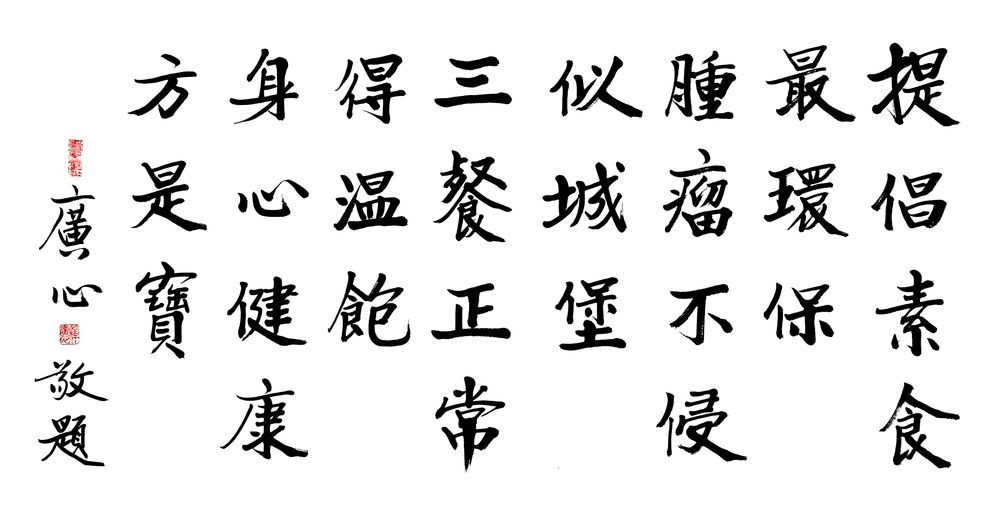 提倡素食
最環保
腫瘤不侵
似城堡
三餐正常
得溫飽
身心健康
方是寶
廣心敬題